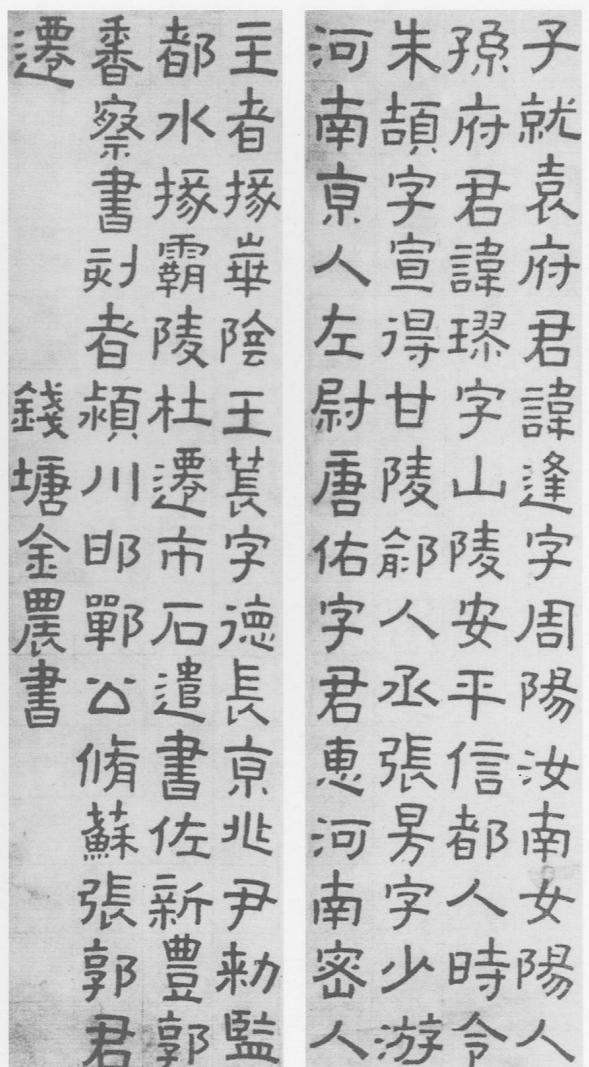 子就袁府君諱逢字周陽汝南女陽人
孫府君諱璆字山陵安平信都人時令
朱頡字宣得甘陵鄃人丞張昉字少游
河南亰人左尉唐佑字君惠河南密人
主者掾崋陰王萇字德長亰兆尹勑監
都水掾霸陵杜遷市石遣書佐新豐郭
香察書刻者潁川邯鄲公脩蘇張郭君
遷 錢塘金農書